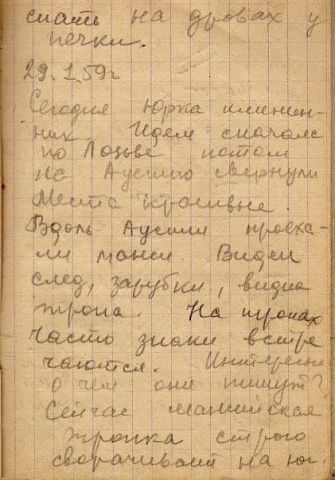 спать на дровах у
печки.
29.1.59г
Сегодня Юрка именин-
ник. Идем сначала
по Лозьве потом
на Ауспию свернули
Места красивые.
Вдоль Ауспии проеха-
ли манси. Виден
след, зарубки, видна
тропа. На тропах
часто знаки встре
чаются. Интересно
о чем они пишут?
Сейчас мансийская
тропка строго
сворачивает на юг.